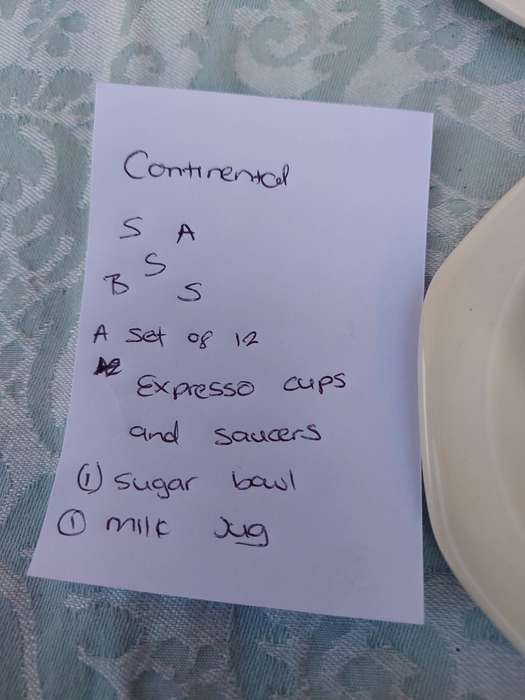 Continental
S A
S
B S
A set of 12
Expresso cups
and saucers
① sugar bowl
① milk jug